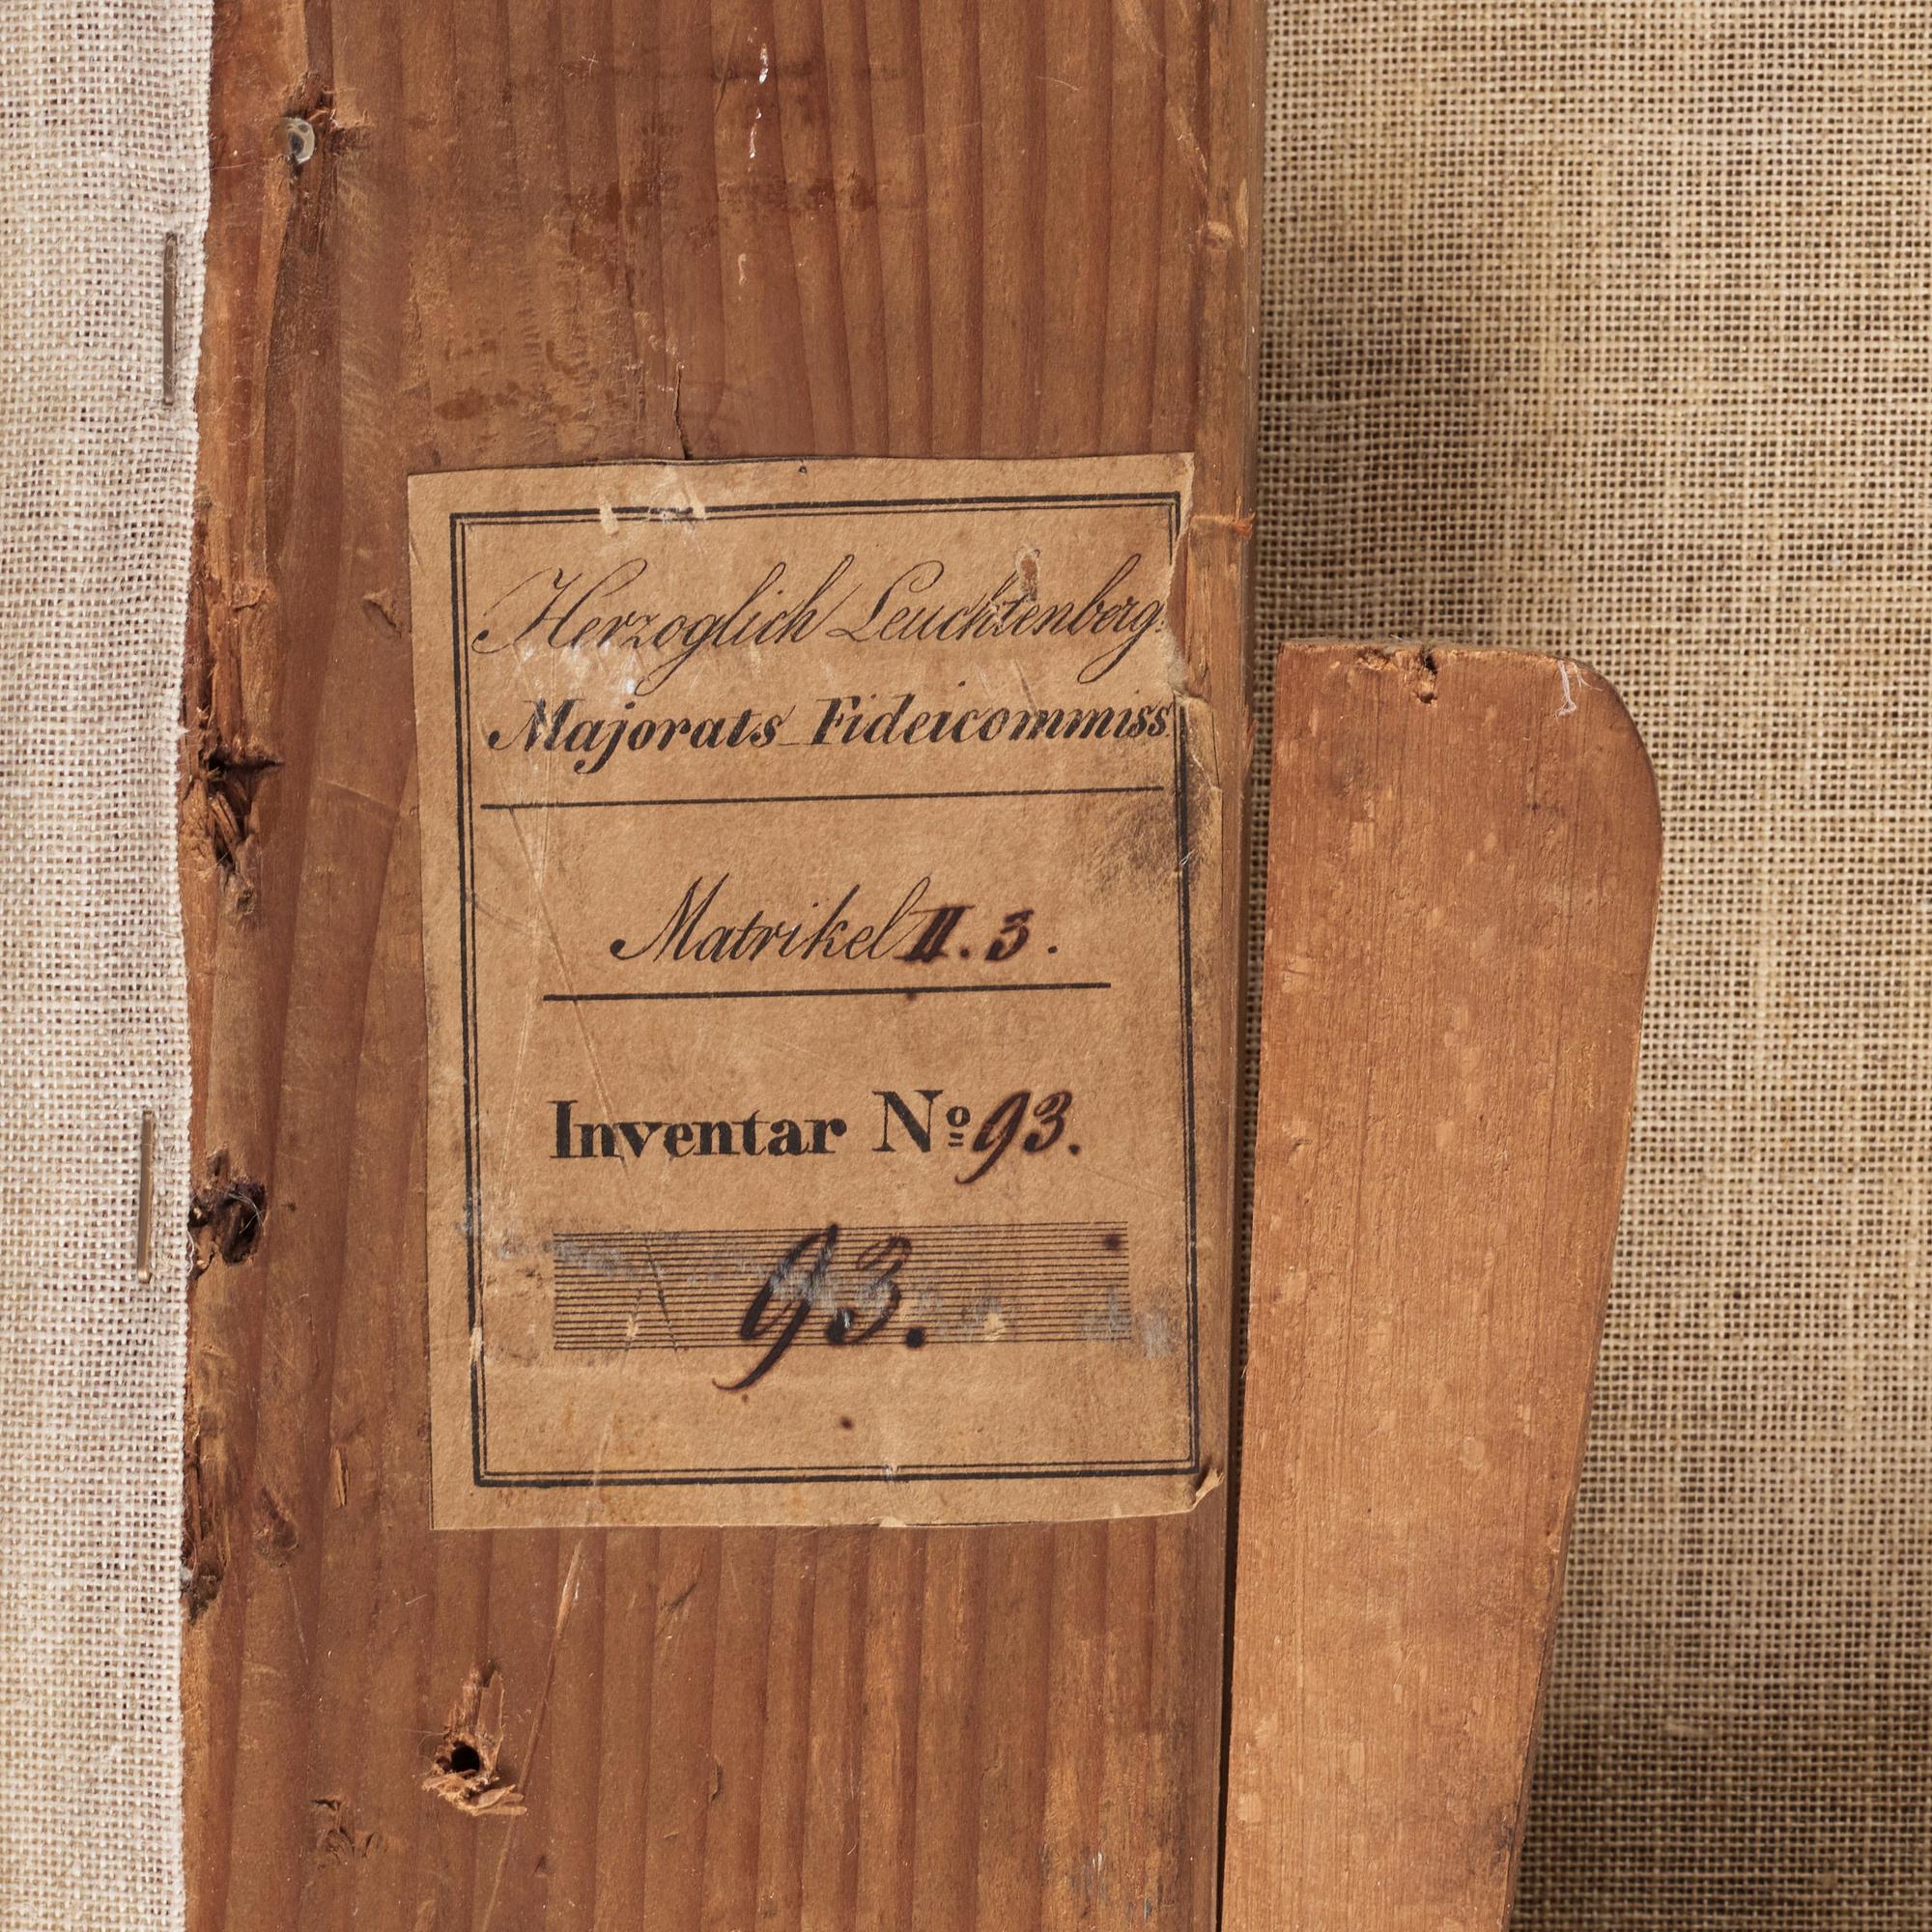 Herzoglich Leuchtenberg.
Majorats-Fideicommiss.
Matrikel II. 3.
Inventar Nº 93.
93.